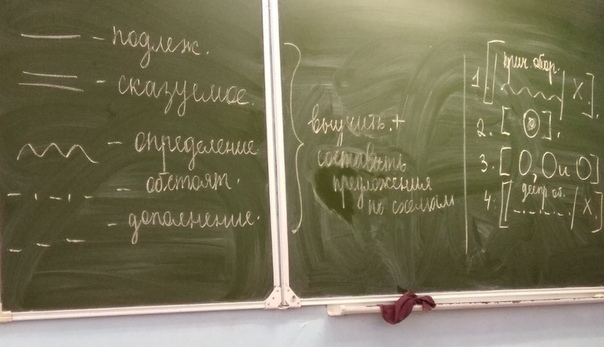 — подлеж.
— сказуемое.
— определение
— обстоят.
— дополнение.
выучить +
составить
предложения
по схемам
1 [| прич. обор. |, X].
2. [ (В) ].
3. [О, О и О]
4. [| деепр. об. |, X].